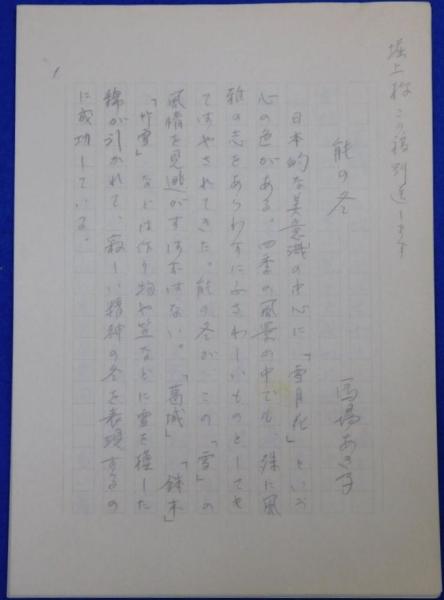 堀上様 この稿別送します
能の冬
馬場あき子
日本的な美意識の中心に「雪月花」という
心の色がある。四季の風景の中でも、殊に風
雅の志をあらわすにふさわしいものとしても
てはやされてきた。能の冬が、この「雪」の
風情を見逃がすはずはない。「葛城」「鉢木」
「竹雪」などは作り物や笠などに雪を模した
綿が引かれて、寂しい精神の冬を表現するの
に成功している。